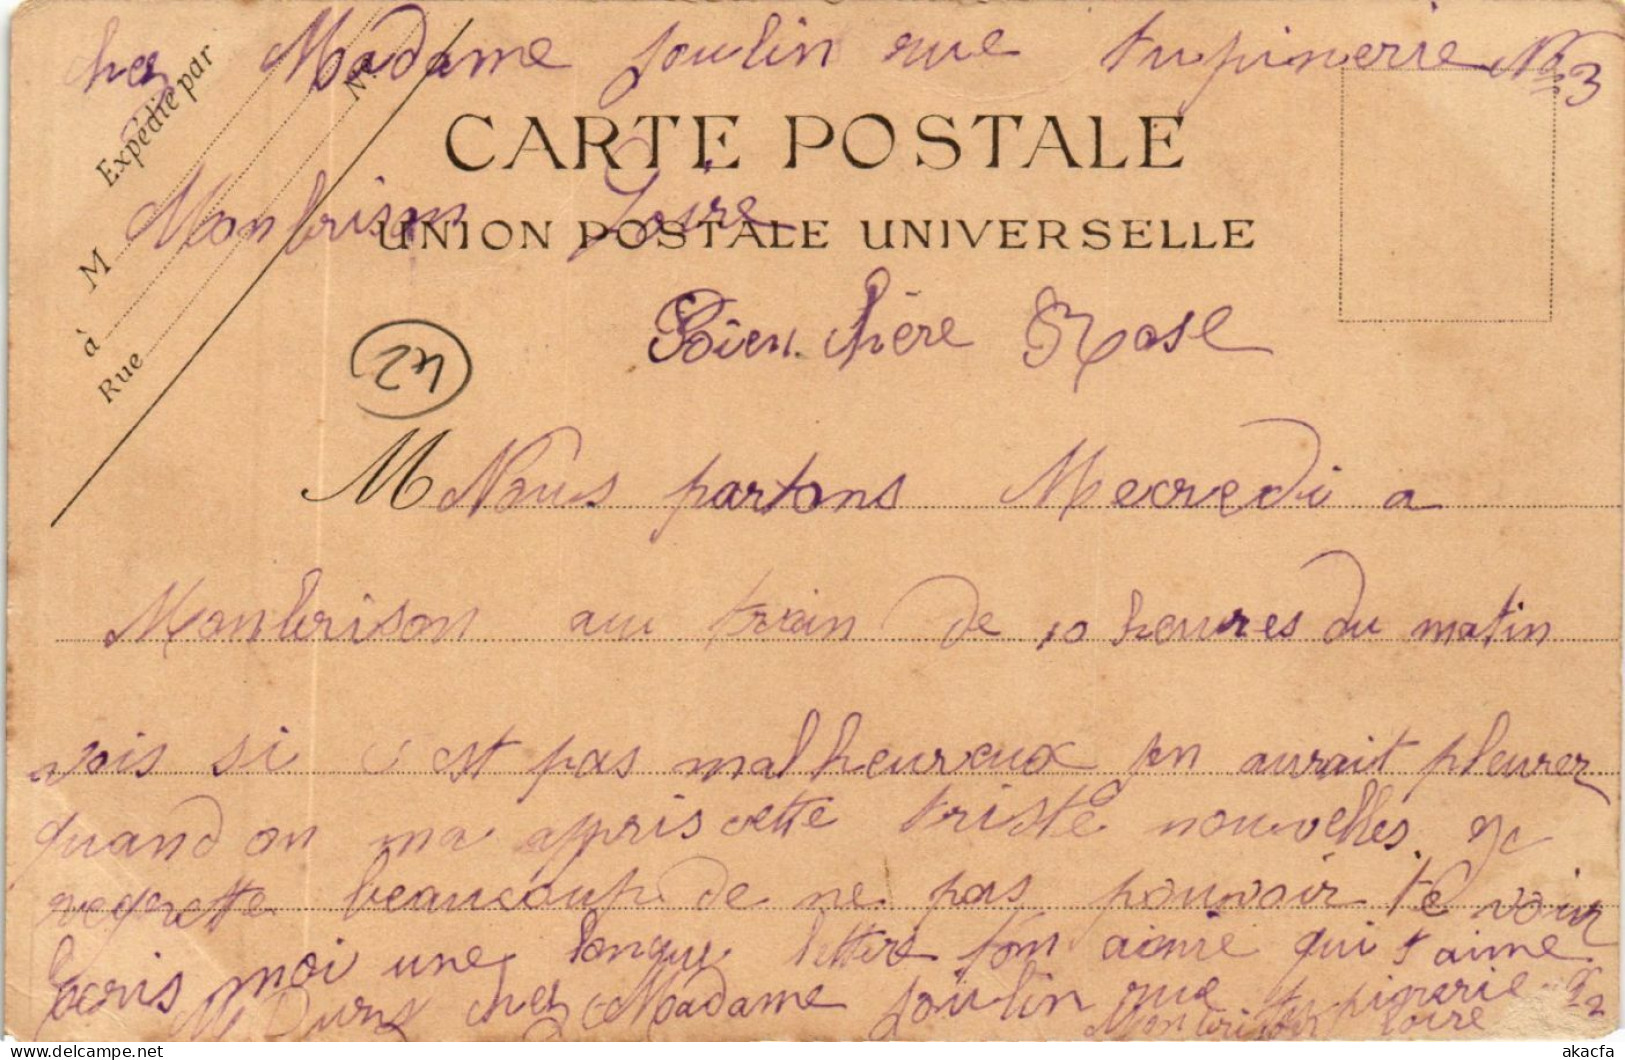 chez Madame Joulin rue tupinerie No 3
Expédié par
No
CARTE POSTALE
Monbrison Loire
UNION POSTALE UNIVERSELLE
M
à
Rue
Bien chère Rose
42
M Nous partons Mecredi a
Monbrison au train de 10 heures du matin
vois si c'est pas malheureux jen aurait pleurer
quand on ma appris cette triste nouvelles. je
regrette beaucoup de ne pas pouvoir te voir
Ecris moi une longue lettre ton aimie qui t'aime
M chez Madame Joulin rue tupinerie
Monbrison Loire
akacfa